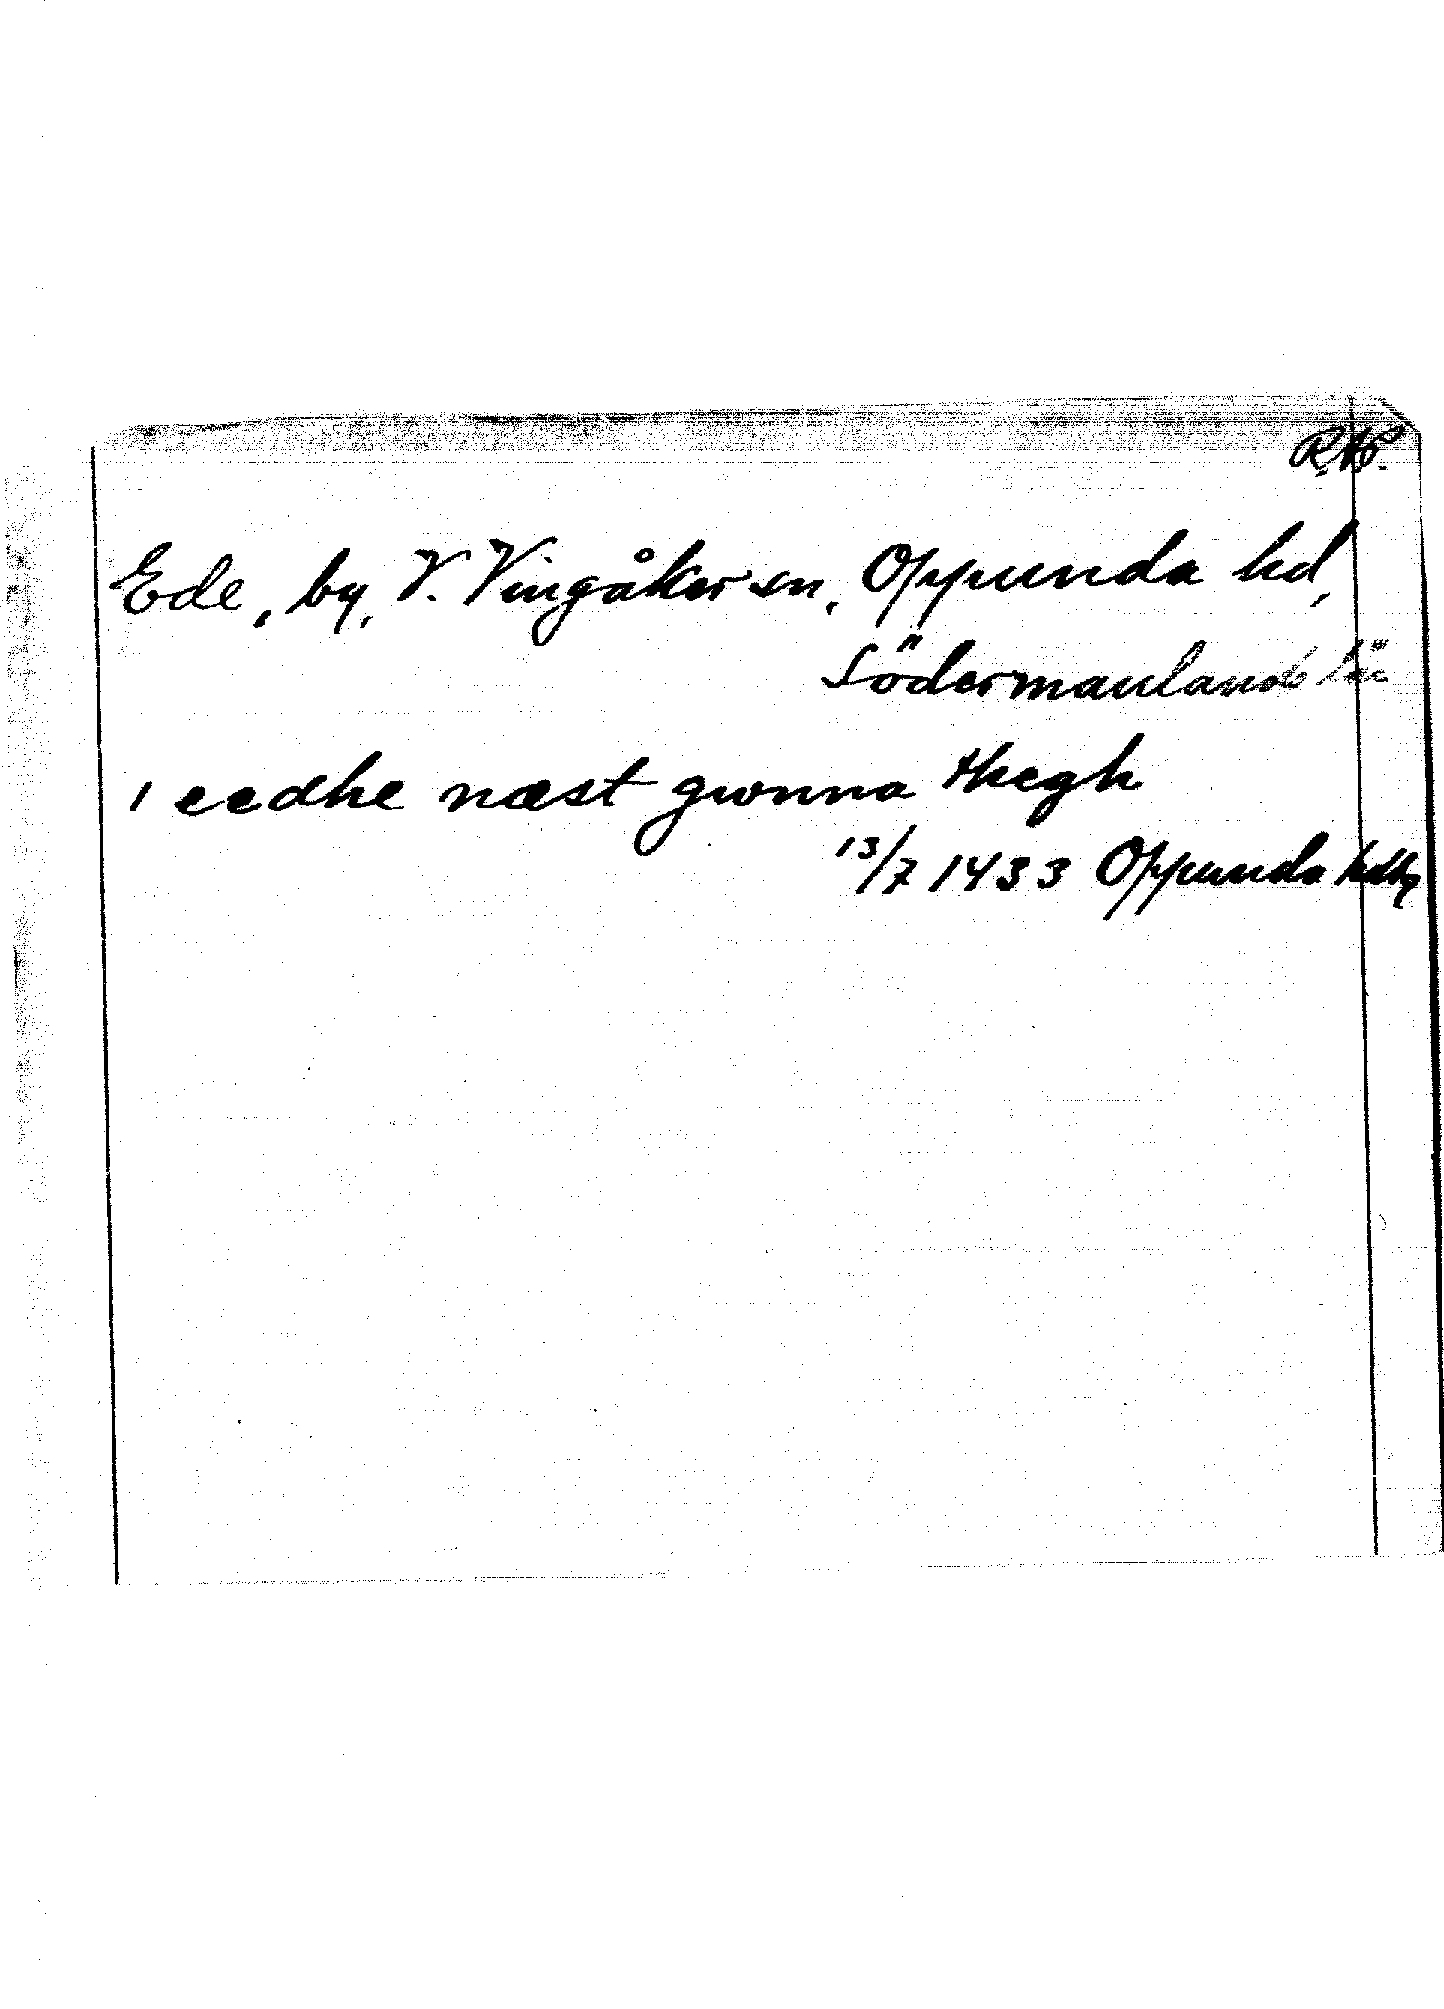 Ede, by, V. Vingåker sn, Oppunda hd,
Södermanlands län
i eedhe næst gwnna thegh
13/7 1433 Oppunda hdbg